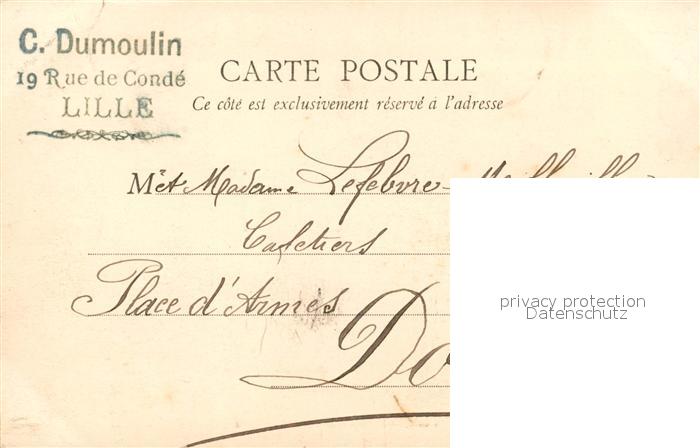 C. Dumoulin
19 Rue de Condé
LILLE
CARTE POSTALE
Ce côté est exclusivement réservé à l'adresse
M et Madame Lefebvre-
Cafetiers
Place d'Armes
privacy protection
Datenschutz